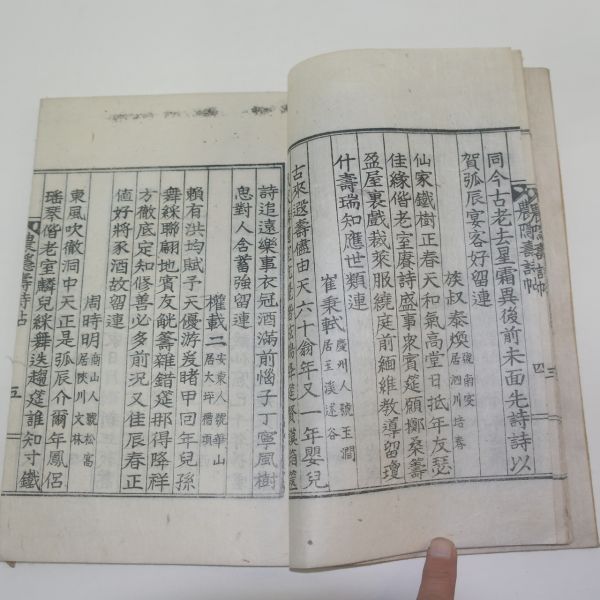 農隱壽詩帖 四
同今古老去星霜異後前未面先詩詩以
賀弧辰宴客好留連
族叔泰煥 後南安 居泗川培春
仙家鐵樹正春天和氣高堂日抵年友瑟
佳緣偕老室賡詩盛事衆賓筵願擲桑籌
盈屋裏戲裁萊服繞庭前緬維教導留瓊
什壽瑞知應世類連
崔秉軾 慶州人號玉澗 居玉溪遂谷
古來遐壽儘由天六十翁年又一年嬰兒
詩追遠樂事衣冠酒滿前惱子丁寧風樹
思對人含蓄強留連
權載二 安東人號華山 居大坪循頭
賴有洪均賦予天優游甲回年兒孫
舞綵聯翩地賓友觥籌雜錯筵那得降祥
方徹底定知修善必多前況又佳辰春正
値好將豕酒故留連
周時明 南山人號松窩 居陜川文林
東風吹徹洞中天正是弧辰介爾年鳳侶
瑤琴偕老室麟兒綵舞迭趨筵誰知寸鐵
農隱壽詩帖 五